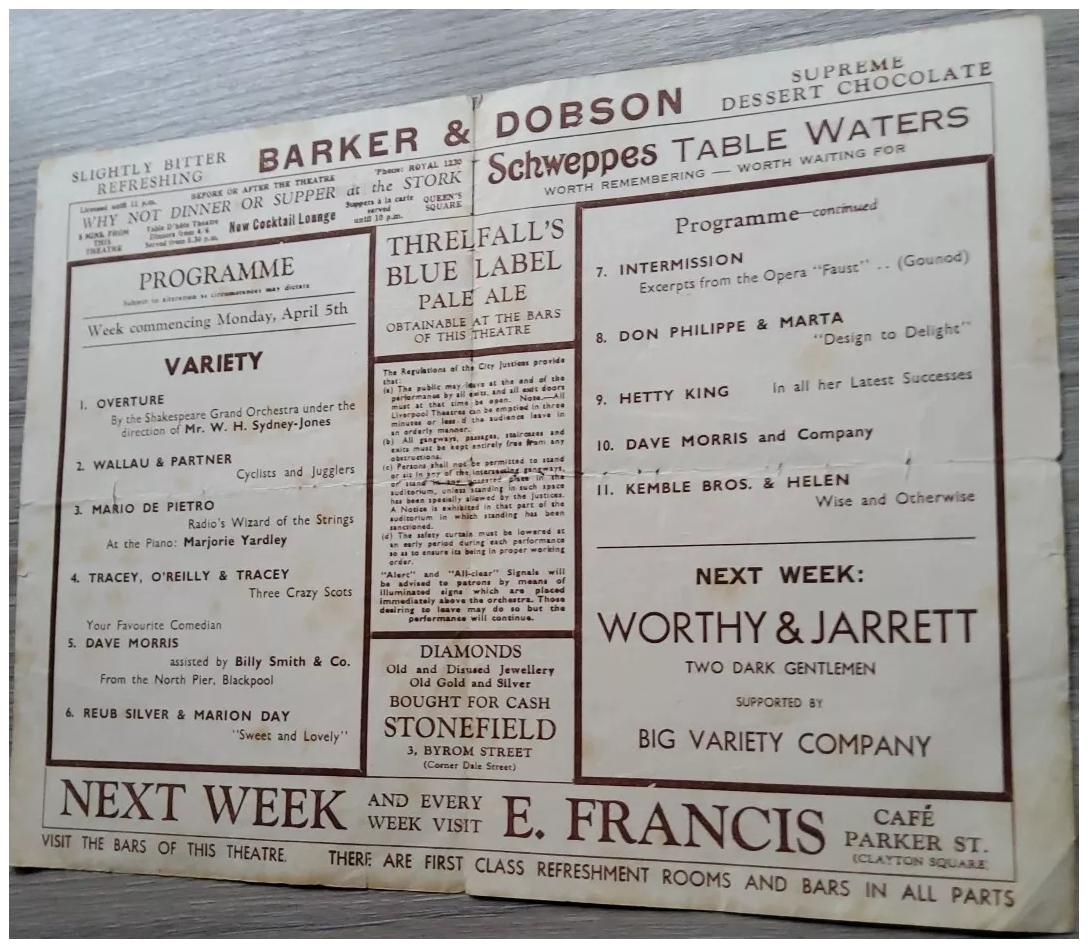 SLIGHTLY BITTER
REFRESHING
BARKER & DOBSON
SUPREME
DESSERT CHOCOLATE
Licensed until 11 p.m.
BEFORE OR AFTER THE THEATRE
'Phone: ROYAL 1230
WHY NOT DINNER OR SUPPER at the STORK
5 MINS. FROM
THIS
THEATRE
Table D'hôte Theatre
Dinners from 4/6
Served from 5.30 p.m.
New Cocktail Lounge
Suppers à la carte
served
until 10 p.m.
QUEEN'S
SQUARE
Schweppes TABLE WATERS
WORTH REMEMBERING — WORTH WAITING FOR
PROGRAMME
Subject to alteration as circumstances may dictate
Week commencing Monday, April 5th
VARIETY
1. OVERTURE
By the Shakespeare Grand Orchestra under the
direction of Mr. W. H. Sydney-Jones
2. WALLAU & PARTNER
Cyclists and Jugglers
3. MARIO DE PIETRO
Radio's Wizard of the Strings
At the Piano: Marjorie Yardley
4. TRACEY, O'REILLY & TRACEY
Three Crazy Scots
Your Favourite Comedian
5. DAVE MORRIS
assisted by Billy Smith & Co.
From the North Pier, Blackpool
6. REUB SILVER & MARION DAY
"Sweet and Lovely"
THRELFALL'S
BLUE LABEL
PALE ALE
OBTAINABLE AT THE BARS
OF THIS THEATRE
The Regulations of the City Justices provide
that:
(a) The public may leave at the end of the
performance by all exits, and all exit doors
must at that time be open. Note.—All
Liverpool Theatres can be emptied in three
minutes or less if the audience leave in
an orderly manner.
(b) All gangways, passages, staircases and
exits must be kept entirely free from any
obstructions.
(c) Persons shall not be permitted to stand
or sit in any of the intersecting gangways,
or stand in any unseated place in the
auditorium, unless standing in such space
has been specially allowed by the Justices.
A Notice is exhibited in that part of the
auditorium in which standing has been
sanctioned.
(d) The safety curtain must be lowered at
an early period during each performance
so as to ensure its being in proper working
order.
"Alert" and "All-clear" Signals will
be advised to patrons by means of
illuminated signs which are placed
immediately above the orchestra. Those
desiring to leave may do so but the
performance will continue.
DIAMONDS
Old and Disused Jewellery
Old Gold and Silver
BOUGHT FOR CASH
STONEFIELD
3, BYROM STREET
(Corner Dale Street)
Programme—continued
7. INTERMISSION
Excerpts from the Opera "Faust" .. (Gounod)
8. DON PHILIPPE & MARTA
"Design to Delight"
9. HETTY KING In all her Latest Successes
10. DAVE MORRIS and Company
11. KEMBLE BROS. & HELEN
Wise and Otherwise
NEXT WEEK:
WORTHY & JARRETT
TWO DARK GENTLEMEN
SUPPORTED BY
BIG VARIETY COMPANY
NEXT WEEK AND EVERY
WEEK VISIT E. FRANCIS CAFÉ
PARKER ST.
(CLAYTON SQUARE)
VISIT THE BARS OF THIS THEATRE. THERE ARE FIRST CLASS REFRESHMENT ROOMS AND BARS IN ALL PARTS